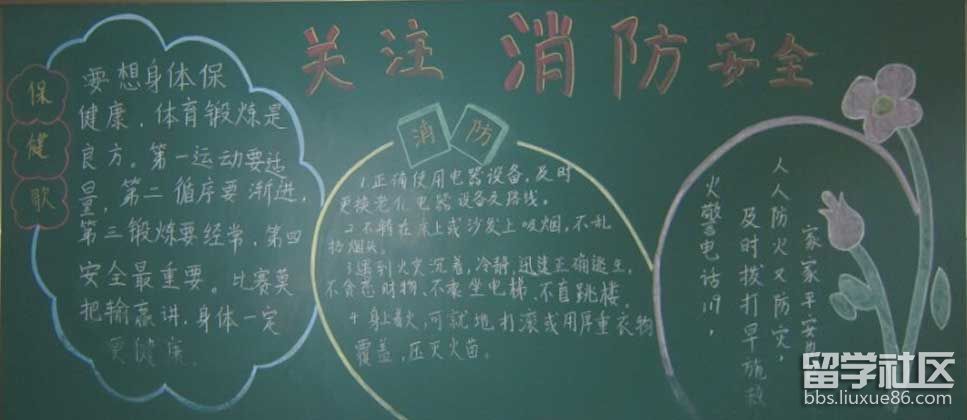 关注消防安全
保健歌
要想身体保
健康,体育锻炼是
良方。第一运动要适
量,第二循序要渐进,
第三锻炼要经常,第四
安全最重要。比赛莫
把输赢讲,身体一定
更健康
消防
1.正确使用电器设备,及时
更换老化电器设备及路线。
2.不躺在床上或沙发上吸烟,不乱
扔烟头。
3.遇到火灾沉着,冷静,迅速正确逃生,
不贪恋财物、不乘坐电梯、不盲跳楼。
4.身上着火,可就地打滚或用厚重衣物
覆盖,压灭火苗。
火警电话119,
及时拨打早施救
人人防火又防灾,
家家平安
留学社区
bbs.liuxue86.com